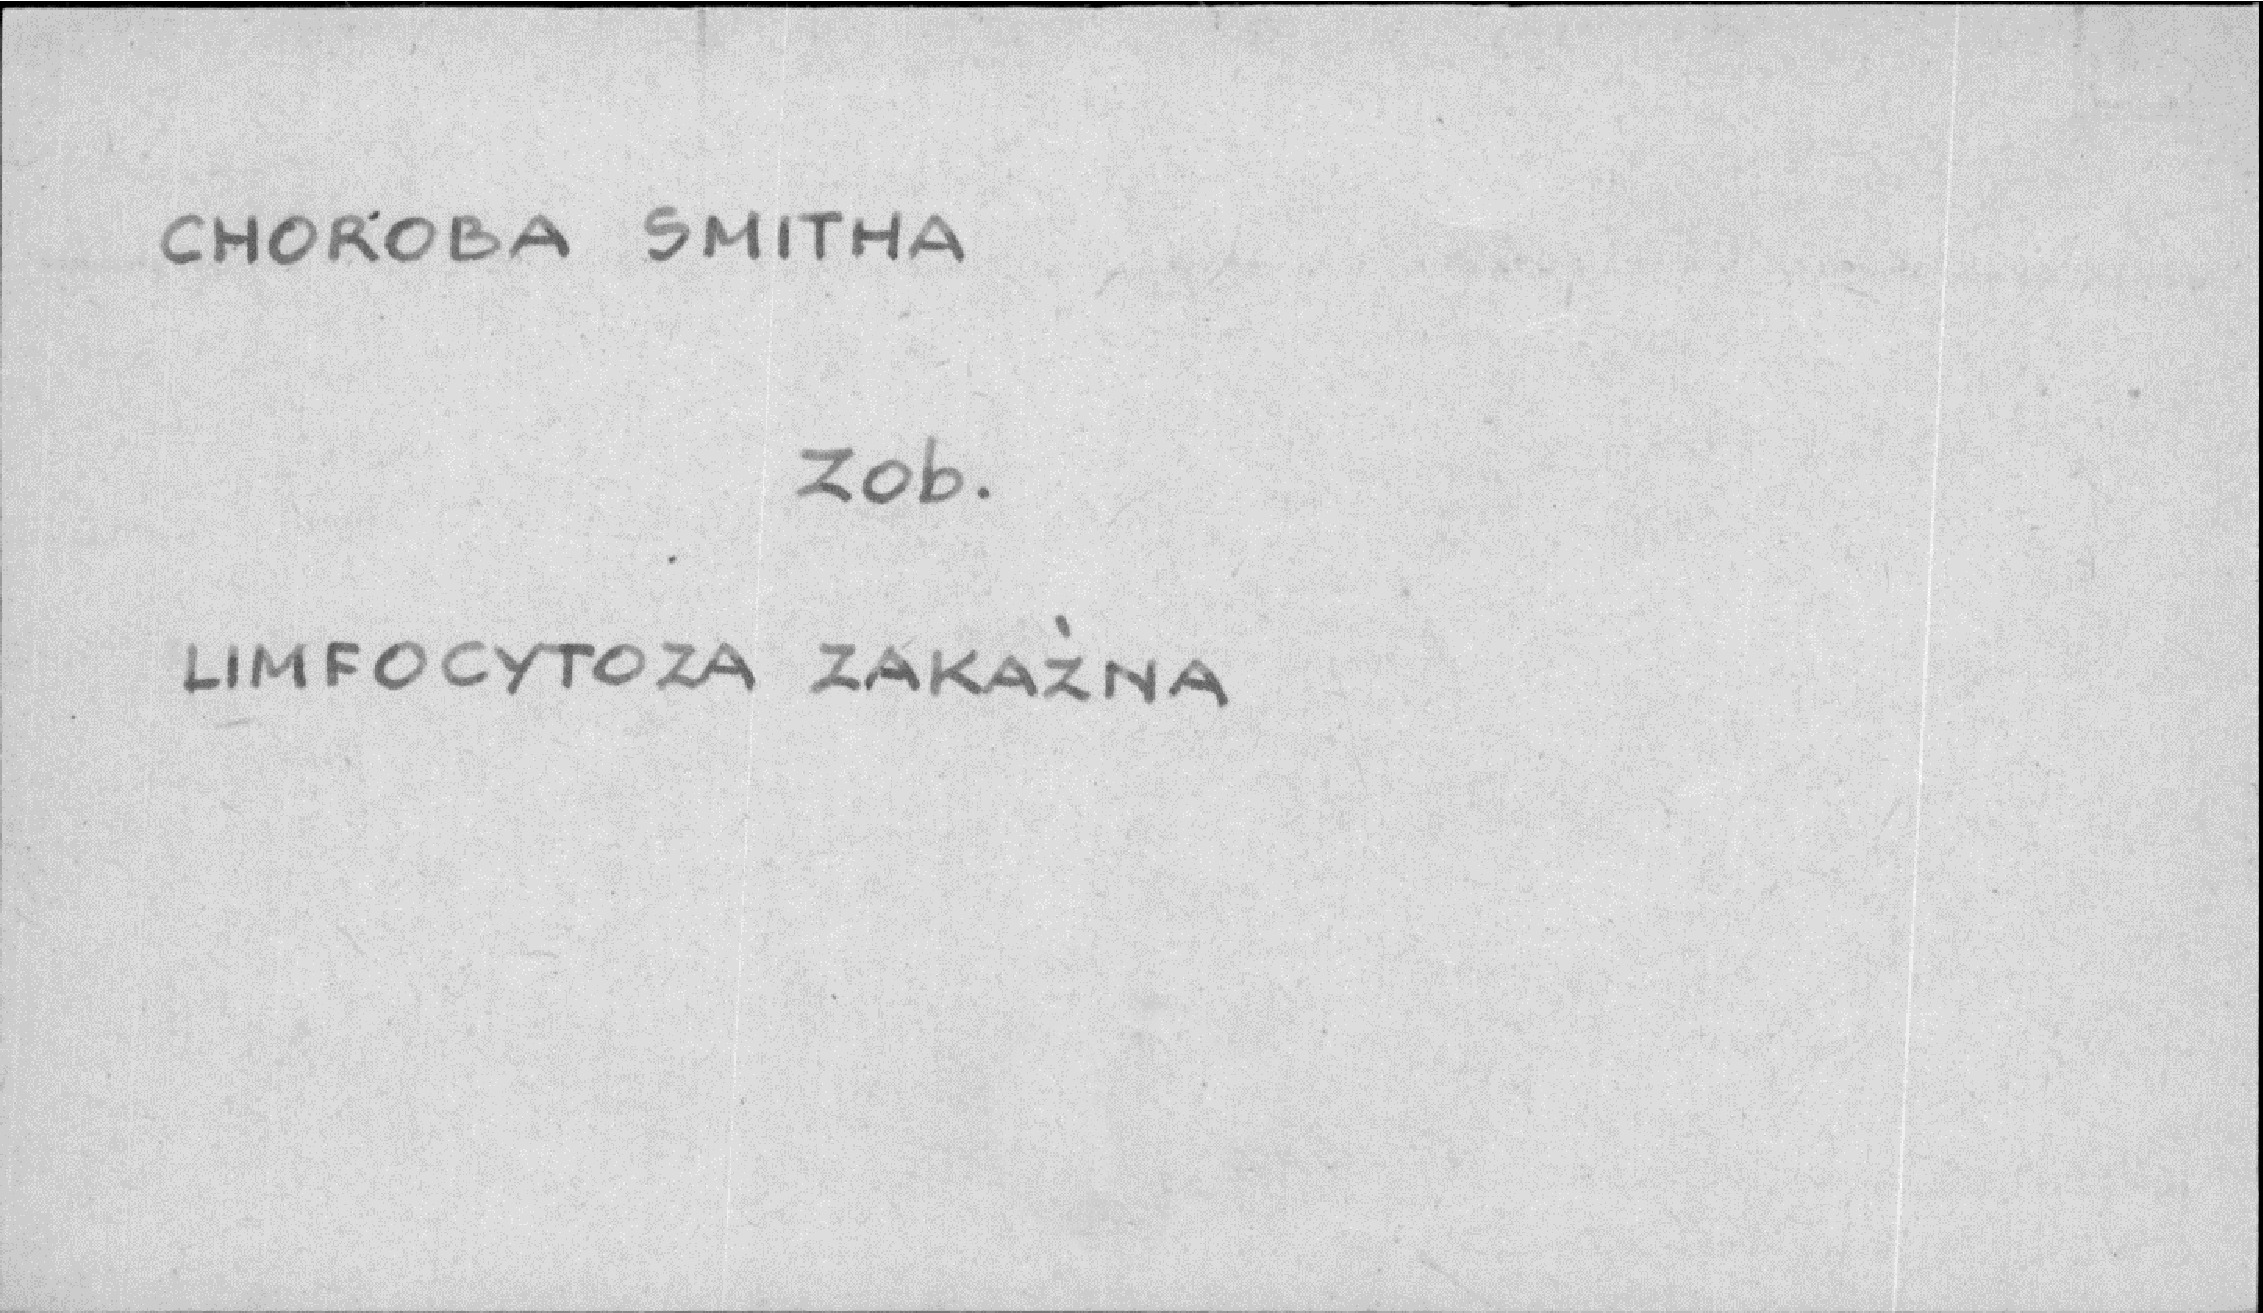 CHOROBA SMITHA
Zob.
LIMFOCYTOZA ZAKAŹNA